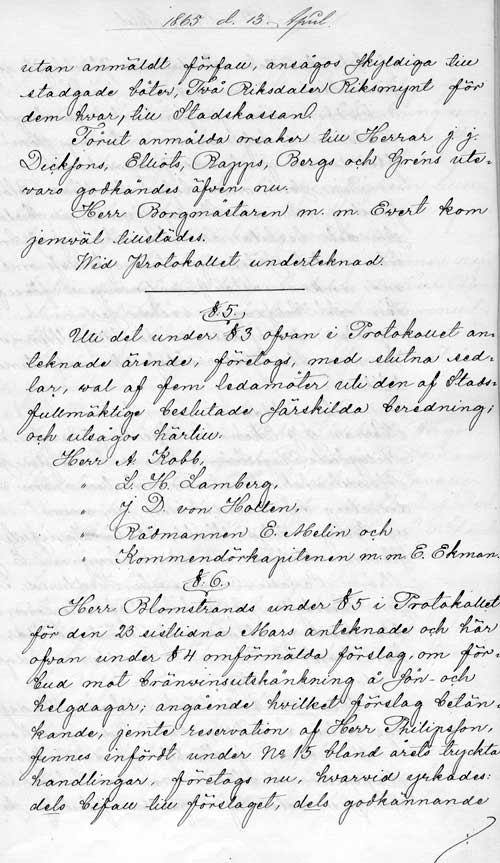 1865 d. 13. April.
utan anmäldt förfall, ansågos skyldiga till
stadgade böter, Två Riksdaler Riksmynt för
dem hvar, till Stadskassan.
Förut anmälda orsaker till Herrar J. J.
Dicksons, Elliots, Rapps, Bergs och Gréns ute-
varo godkändes äfven nu.
Herr Borgmästaren m. m. Evert kom
jemwäl tillstädes.
Wid Protokollet undertecknad.
§. 5.
Uti det under § 3 ofvan i Protokollet an-
teknade ärende, företogs, med slutna sed-
lar, wal af fem ledamöter uti den af Stads-
fullmäktige beslutade särskilda beredning;
och utsågos härtill.
Herr A. Kobb,
" L. H. Lamberg,
" J. D. von Holten,
" Rådmannen E. Melin och
" Kommendörkapitenen m. m. E. Ekman.
§. 6.
Herr Blomstrands under § 5 i Protokollet
för den 23 sistlidna Mars anteknade och här
ofvan under § 4 omförmälda förslag, om för-
bud mot bränvinsutskänkning å sön- och
helgdagar; angående hvilket förslag betän-
kande, jemte reservation af Herr Philipsson,
finnes infördt under No 15 bland årets tryckta
handlingar, företogs nu, hvarvid yrkades:
dels bifall till förslaget, dels godkännande